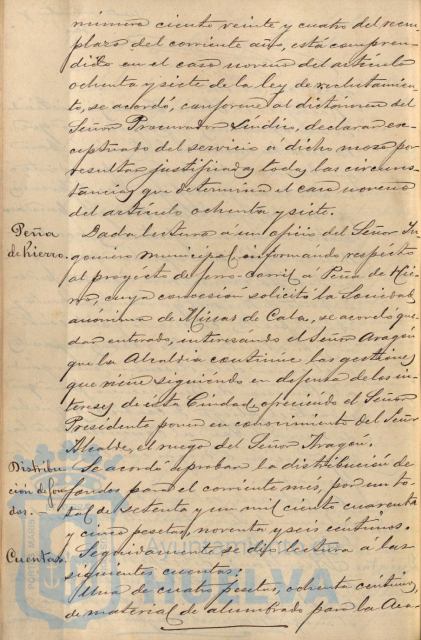 número ciento veinte y cuatro del reem-
plazo del corriente año, está compren-
dido en el caso noveno del artículo
ochenta y siete de la ley de reclutamien-
to, se acordó, conforme al dictámen del
Señor Procurador Síndico, declarar es-
ceptuado del servicio á dicho mozo por
resultar justificadas todas las circuns-
tancias que determina el caso noveno
del artículo ochenta y siete.
Peña
de hierro.
Dada lectura á un oficio del Señor In-
geniero municipal informando respecto
al proyecto de ferro-carril á Peña de Hie-
rro, cuya concesión solicitó la Sociedad
anónima de Minas de Cala, se acordó que-
dar enterado, interesando el Señor Aragón
que la Alcaldía continúe las gestiones
que viene siguiendo en defensa de los in-
tereses de esta Ciudad, ofreciendo el Señor
Presidente poner en conocimiento del Señor
Alcalde, el ruego del Señor Aragón.
Distribu-
ción de fon-
dos.
Se acordó aprobar la distribución de
fondos para el corriente mes, por un to-
tal de setenta y un mil ciento cuarenta
y cinco pesetas, noventa y seis céntimos.
Cuentas.
Seguidamente se dió lectura á las
siguientes cuentas:
Una de cuatro pesetas, ochenta céntimos,
de material de alumbrado para la Aca-
Ayuntamiento de
HUELVA